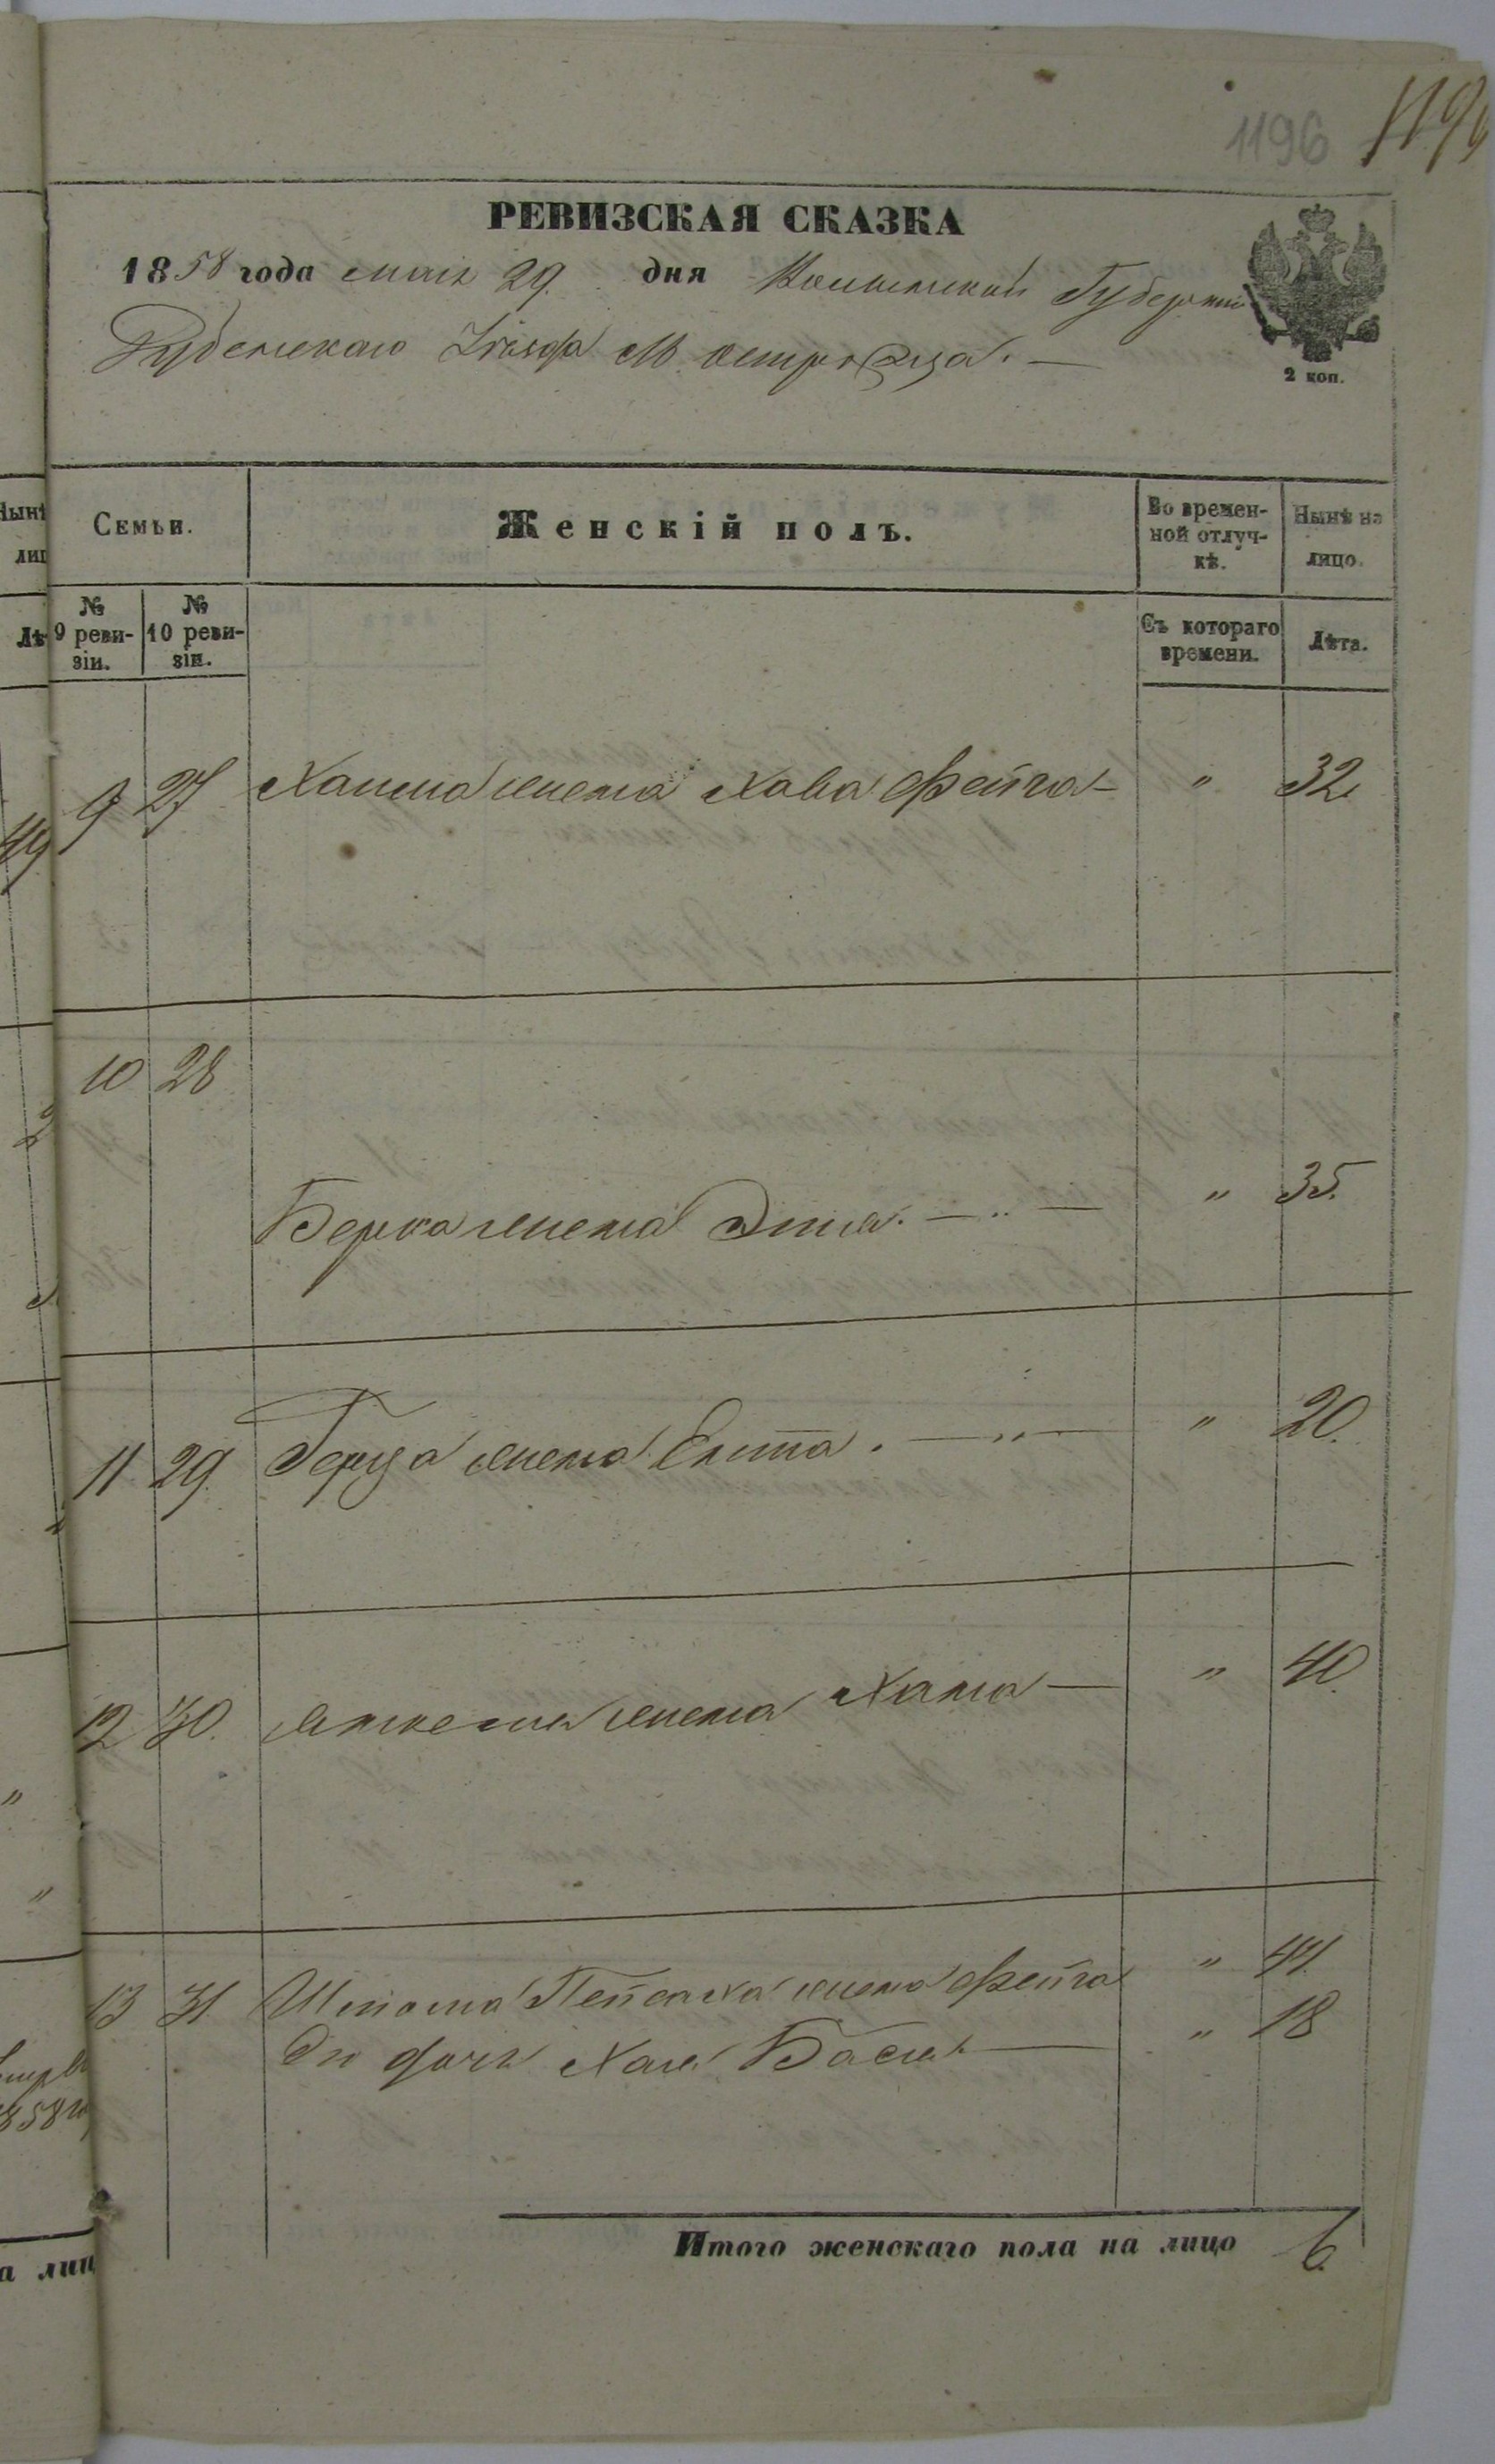 1196 1196
РЕВИЗСКАЯ СКАЗКА
1858 года мая 29. дня Волынской Губерніи
Дубенскаго Уѣзда М.
2 коп.
Семьи.
Женскій полъ.
Во времен-
ной отлуч-
кѣ.
Нынѣ на
лицо.
№
9 реви-
зіи.
№
10 реви-
зіи.
Съ котораго
времени.
Лѣта.
9 27 жена Хава Фейга — " 32
10 28
Берка жена — " 35.
11 29. Герца жена — " 20.
12 30. жена Хана — " 40.
13 31 Пейсаха жена Фейга " 41
дочь Хая Бася — " 18
Итого женскаго пола на лицо 6.